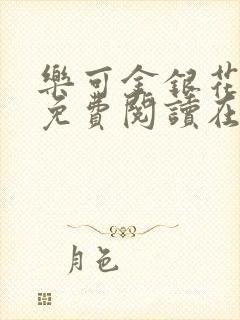 樂可金銀花
免費閱讀在
月色